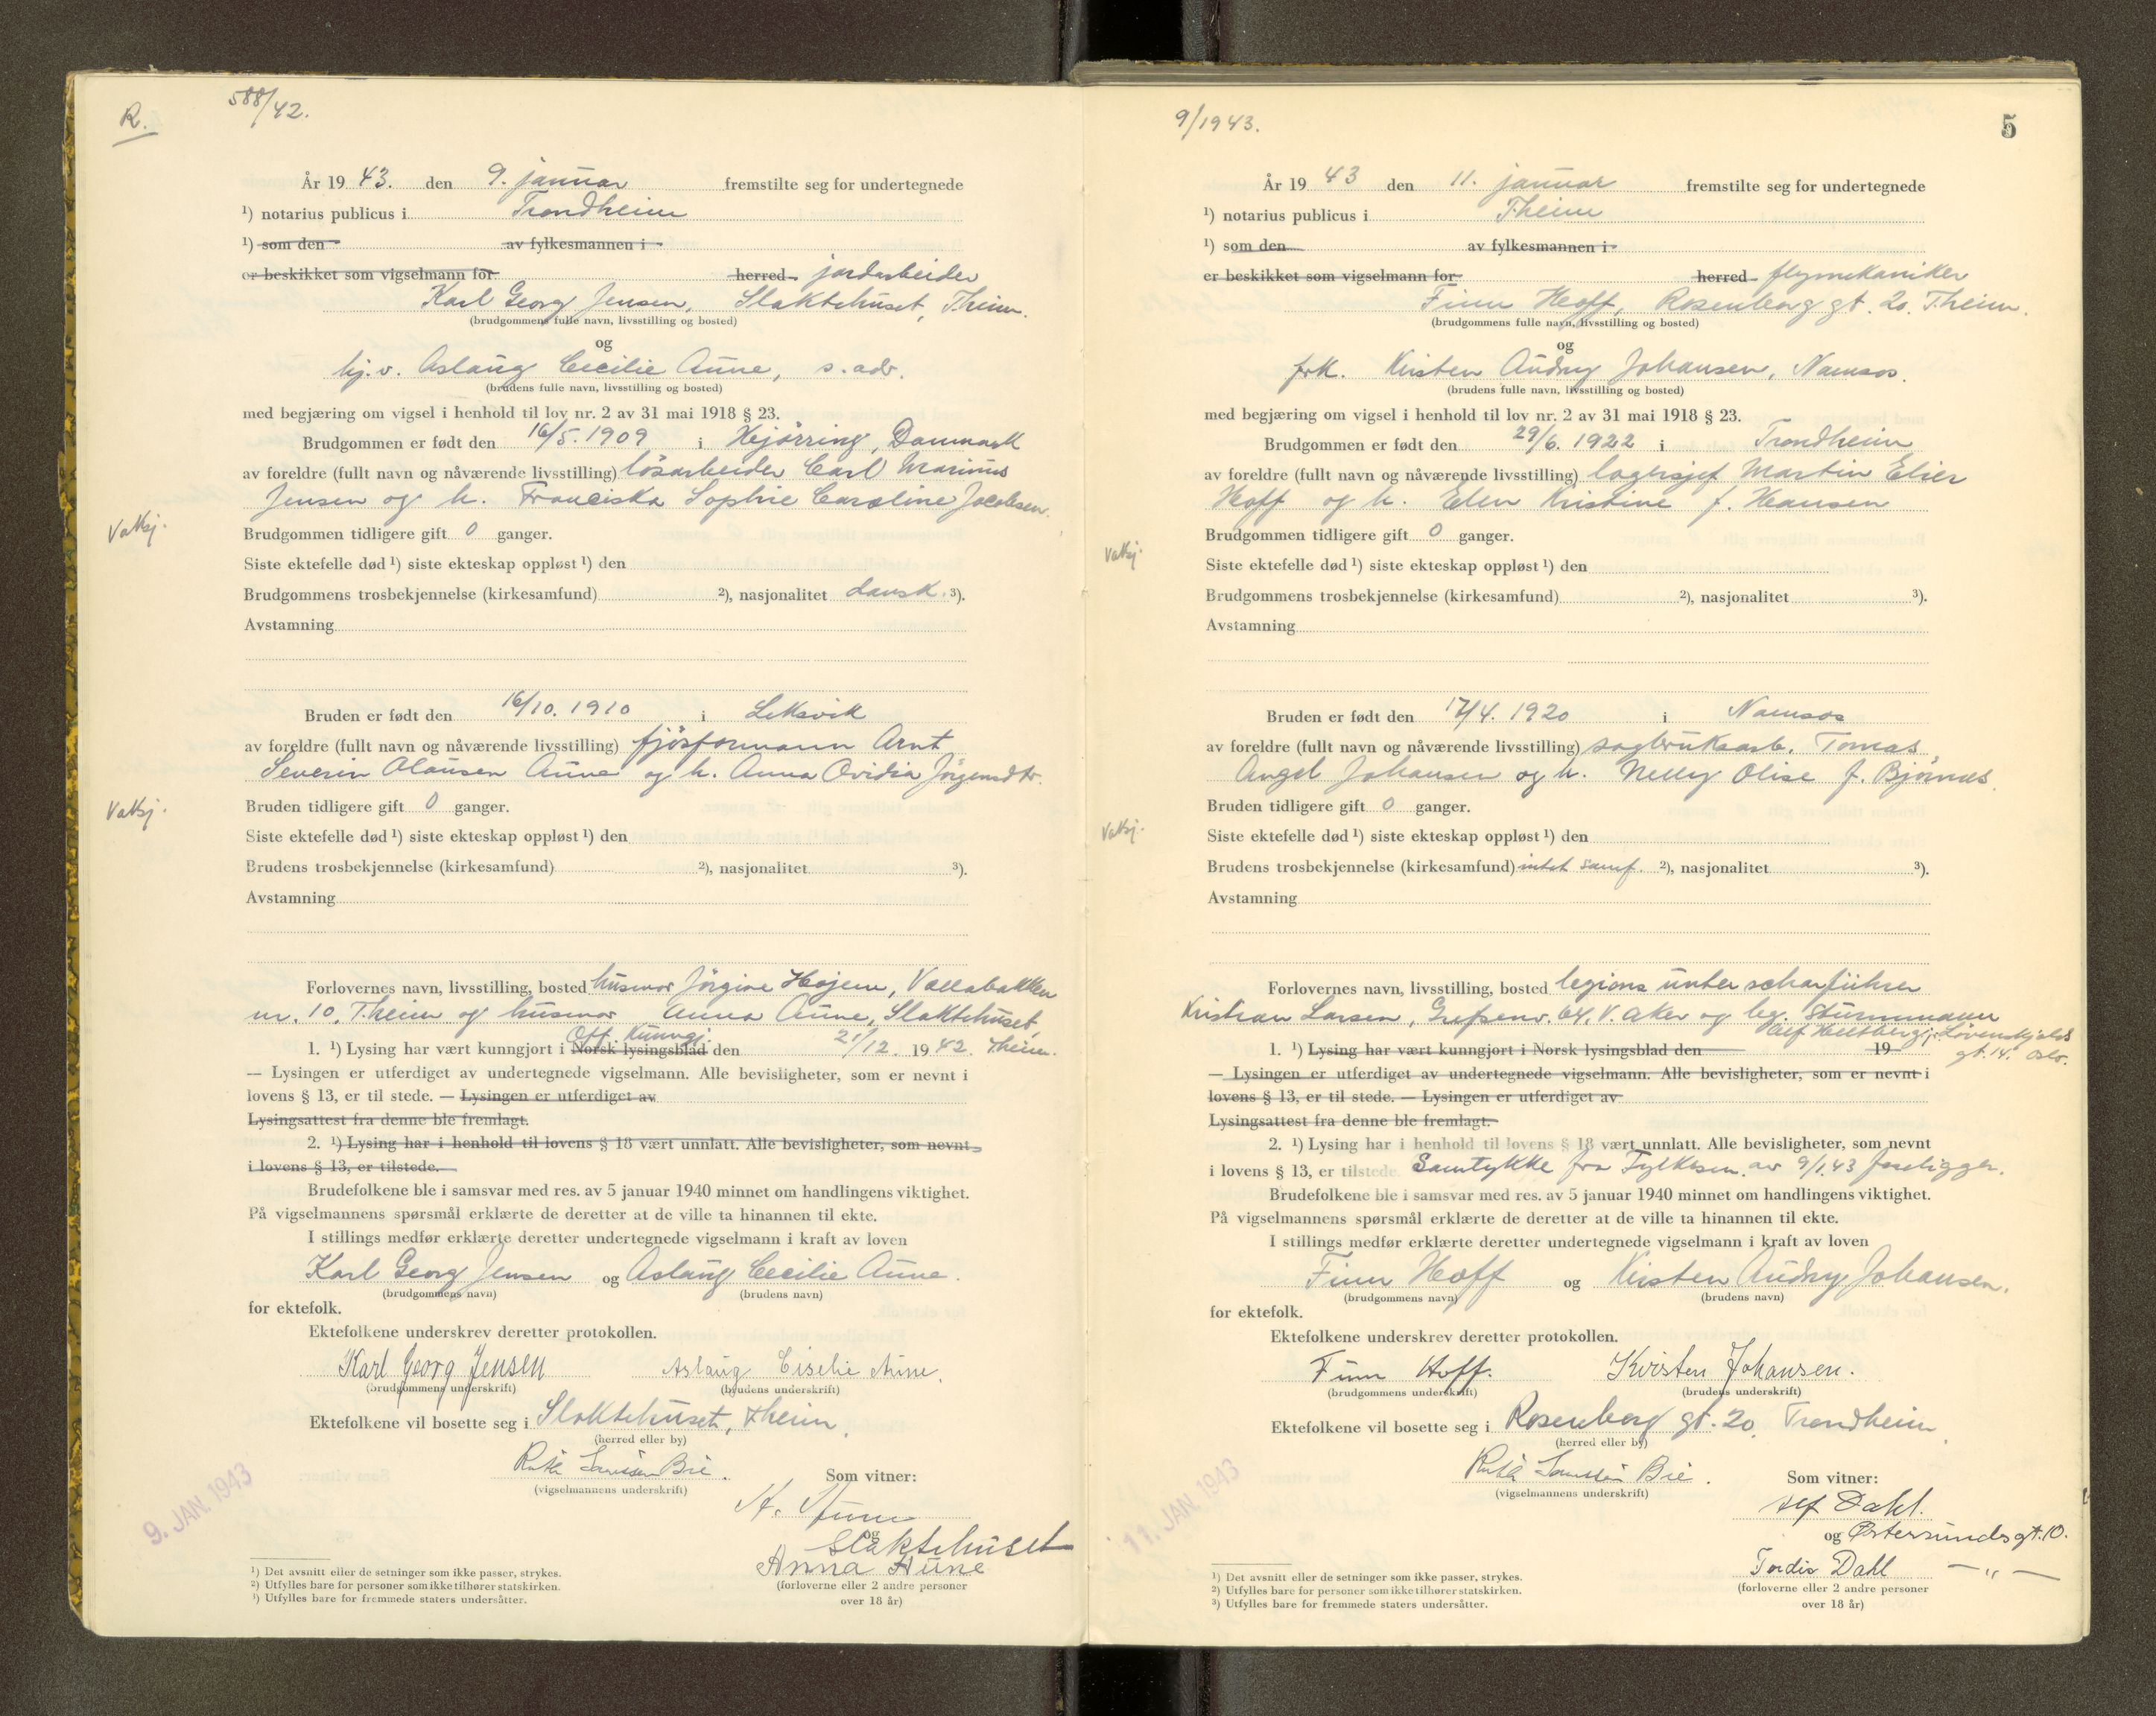 R.
588/42.
År 1943. den 9. januar fremstilte seg for undertegnede
¹) notarius publicus i Trondheim
¹) som den av fylkesmannen i
er beskikket som vigselmann for herred jordarbeider
Karl Georg Jensen, Slaktehuset, T.heim.
(brudgommens fulle navn, livsstilling og bosted)
og
hj.v. Aslaug Cecilie Aune, s. adr.
(brudens fulle navn, livsstilling og bosted)
med begjæring om vigsel i henhold til lov nr. 2 av 31 mai 1918 § 23.
Brudgommen er født den 16/5. 1909 i Hjørring, Danmark
av foreldre (fullt navn og nåværende livsstilling) løsarbeider Carl Marinus
Jensen og h. Franciska Sophie Caroline Jacobsen.
Vaksj.
Brudgommen tidligere gift 0 ganger.
Siste ektefelle død ¹) siste ekteskap oppløst ¹) den
Brudgommens trosbekjennelse (kirkesamfund) ²), nasjonalitet dansk. ³).
Avstamning
Bruden er født den 16/10. 1910 i Leksvik
av foreldre (fullt navn og nåværende livsstilling) fjøsformann Arnt
Severin Olausen Aune og h. Anna Ovidia Jørgensdtr.
Vaksj.
Bruden tidligere gift 0 ganger.
Siste ektefelle død ¹) siste ekteskap oppløst ¹) den
Brudens trosbekjennelse (kirkesamfund) ²), nasjonalitet ³).
Avstamning
Forlovernes navn, livsstilling, bosted husmor Jørgine Højem, Vollabakken
nr. 10, T.heim og husmor Anna Aune, Slaktehuset,
Off. Kunngj.
1. ¹) Lysing har vært kunngjort i Norsk lysingsblad den 21/12. 1942. T.heim.
— Lysingen er utferdiget av undertegnede vigselmann. Alle bevisligheter, som er nevnt i
lovens § 13, er til stede. — Lysingen er utferdiget av
Lysingsattest fra denne ble fremlagt.
2. ¹) Lysing har i henhold til lovens § 18 vært unnlatt. Alle bevisligheter, som nevnt
i lovens § 13, er tilstede.
Brudefolkene ble i samsvar med res. av 5 januar 1940 minnet om handlingens viktighet.
På vigselmannens spørsmål erklærte de deretter at de ville ta hinannen til ekte.
I stillings medfør erklærte deretter undertegnede vigselmann i kraft av loven
Karl Georg Jensen og Aslaug Cecilie Aune.
(brudgommens navn) (brudens navn)
for ektefolk.
Ektefolkene underskrev deretter protokollen.
Karl Georg Jensen Aslaug Ciselie Aune.
(brudgommens underskrift) (brudens underskrift)
Ektefolkene vil bosette seg i Slaktehuset, T.heim.
(herred eller by)
Ruth Bie.
(vigselmannens underskrift)
Som vitner:
9. JAN. 1943
A. Aune
og
Slaktehuset
Anna Aune
(forloverne eller 2 andre personer
over 18 år)
¹) Det avsnitt eller de setninger som ikke passer, strykes.
²) Utfylles bare for personer som ikke tilhører statskirken.
³) Utfylles bare for fremmede staters undersåtter.
9/1943.
5
År 1943 den 11. januar fremstilte seg for undertegnede
¹) notarius publicus i T.heim
¹) som den av fylkesmannen i
er beskikket som vigselmann for herred flymekaniker
Finn Hoff, Rosenborg gt. 20. T.heim.
(brudgommens fulle navn, livsstilling og bosted)
og
frk. Kirsten Audny Johansen, Namsos.
(brudens fulle navn, livsstilling og bosted)
med begjæring om vigsel i henhold til lov nr. 2 av 31 mai 1918 § 23.
Brudgommen er født den 29/6. 1922 i Trondheim
av foreldre (fullt navn og nåværende livsstilling) lagersjef Martin Elier
Hoff og h. Elen Kristine f. Hansen
Brudgommen tidligere gift 0 ganger.
Vaksj.
Siste ektefelle død ¹) siste ekteskap oppløst ¹) den
Brudgommens trosbekjennelse (kirkesamfund) ²), nasjonalitet ³).
Avstamning
Bruden er født den 17/4. 1920 i Namsos
av foreldre (fullt navn og nåværende livsstilling) sagbruksarb. Tomas
Angel Johansen og h. Nelly Olise f. Bjørnes.
Bruden tidligere gift 0 ganger.
Vaksj.
Siste ektefelle død ¹) siste ekteskap oppløst ¹) den
Brudens trosbekjennelse (kirkesamfund) intet samf. ²), nasjonalitet ³).
Avstamning
Forlovernes navn, livsstilling, bosted legions unterscharführer
Kristian Larsen, Grefsenv. 64, V. Aker og leg. Sturmmann
Leif Løvenskjolds
gt. 14. Oslo.
1. ¹) Lysing har vært kunngjort i Norsk lysingsblad den 19
— Lysingen er utferdiget av undertegnede vigselmann. Alle bevisligheter, som er nevnt i
lovens § 13, er til stede. — Lysingen er utferdiget av
Lysingsattest fra denne ble fremlagt.
2. ¹) Lysing har i henhold til lovens § 18 vært unnlatt. Alle bevisligheter, som nevnt
i lovens § 13, er tilstede. Samtykke fra Fylkesm. av 9/1.43 foreligger.
Brudefolkene ble i samsvar med res. av 5 januar 1940 minnet om handlingens viktighet.
På vigselmannens spørsmål erklærte de deretter at de ville ta hinannen til ekte.
I stillings medfør erklærte deretter undertegnede vigselmann i kraft av loven
Finn Hoff og Kirsten Audny Johansen.
(brudgommens navn) (brudens navn)
for ektefolk.
Ektefolkene underskrev deretter protokollen.
Finn Hoff. Kirsten Johansen.
(brudgommens underskrift) (brudens underskrift)
Ektefolkene vil bosette seg i Rosenborg gt. 20, Trondheim.
(herred eller by)
Ruth Bie.
(vigselmannens underskrift)
Som vitner:
11. JAN. 1943
Alf Dahl.
og Østersundsgt. 10.
Tordis Dahl — „ —
(forloverne eller 2 andre personer
over 18 år)
¹) Det avsnitt eller de setninger som ikke passer, strykes.
²) Utfylles bare for personer som ikke tilhører statskirken.
³) Utfylles bare for fremmede staters undersåtter.